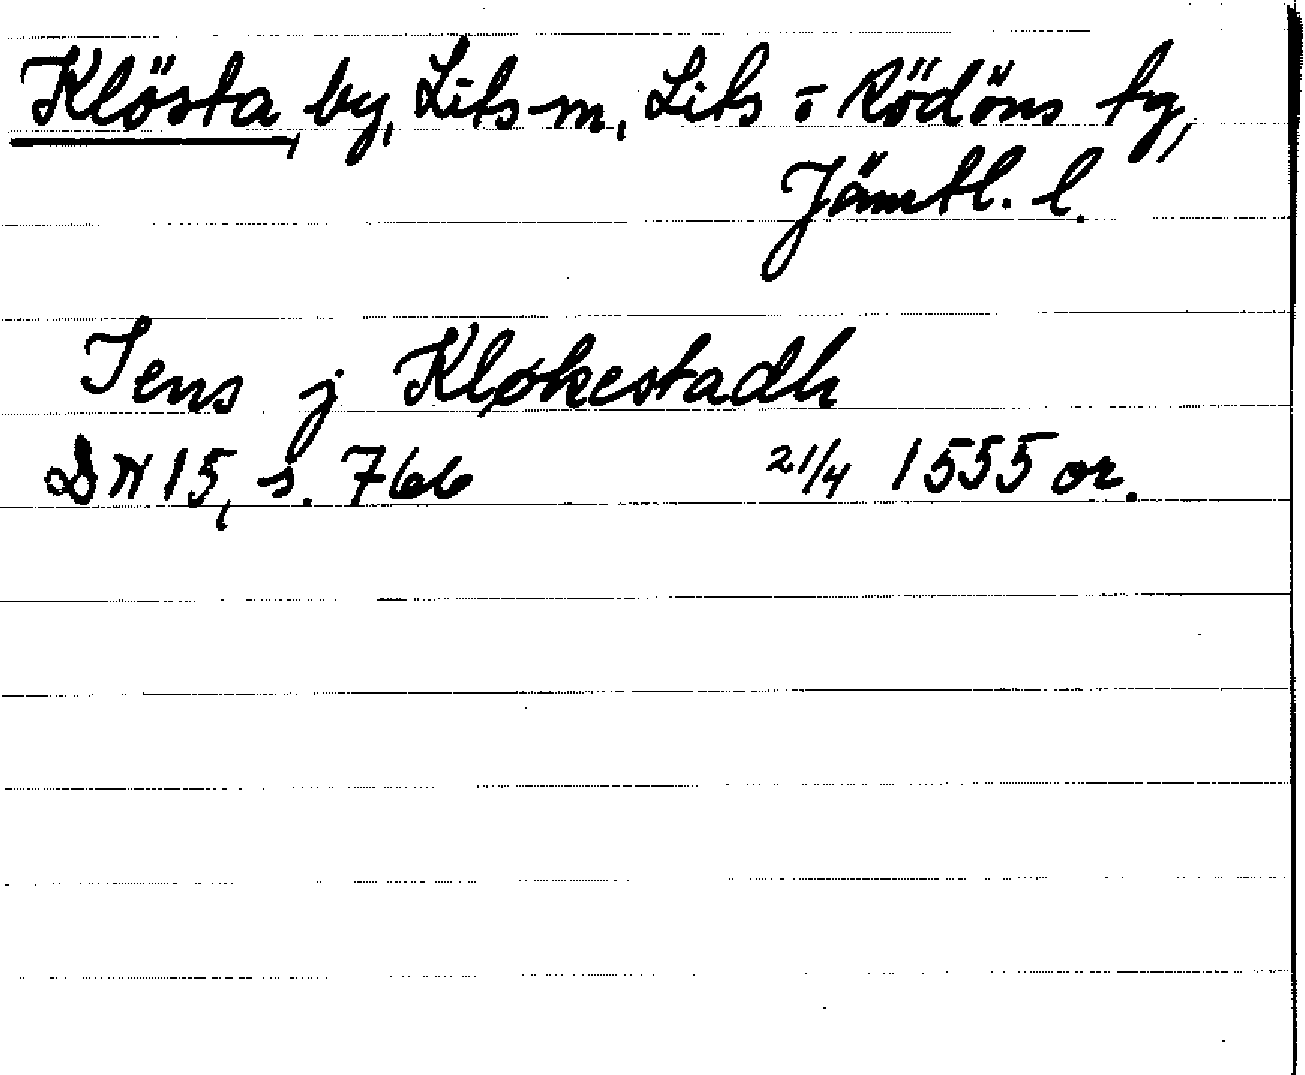 Klösta, by, Lits sn, Lits o Rödöns tg,
Jämtl. l.
Jens j Kløkestadh
DN 15, s. 766 21/4 1555 or.